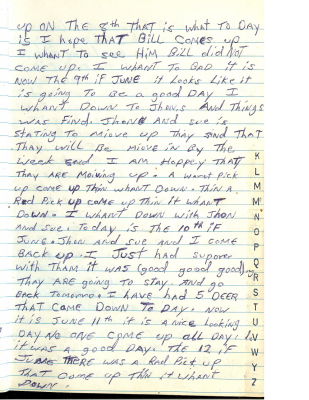 up ON The 8th That is what To Day
is I hope That Bill Comes up
I whant To see Him Bill did not
come up. I whant To Bad it is
Now The 9th if June it Looks Like it
is going To Be a good Day I
whant Down To Jhons And Things
was Find. Jhon And sue is
stating To miove up They and That
They will Be miove in By The
week I AM Hoppey That
They Are moiving up. A Pick
up come up Thin whant Down. Thin A
Red Pick up come up Thin It whant
Down. I whant Down with Jhon
And Sue. Today is The 10th if
June. Jhon And sue and I come
Back up. I Just had supper
with Tham it was (good good good)
They are going to stay. And go
Back Tomorro. I have had 5 Deer
That came Down To Day. Now
it is June 11th it is a nice Looking
DAY NO ONE come up all Day.
it was a good Day. The 12 if
June There was a Red Pick up
That come up Thin it whant
Down.
K
L
M
M
N
O
P
Q
R
S
T
U
V
W
Y
Z